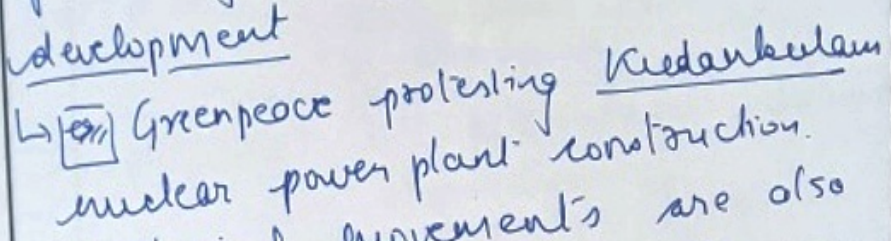 development
↳ Greenpeace protesting Kudankulam
nuclear power plant construction.
movements are also